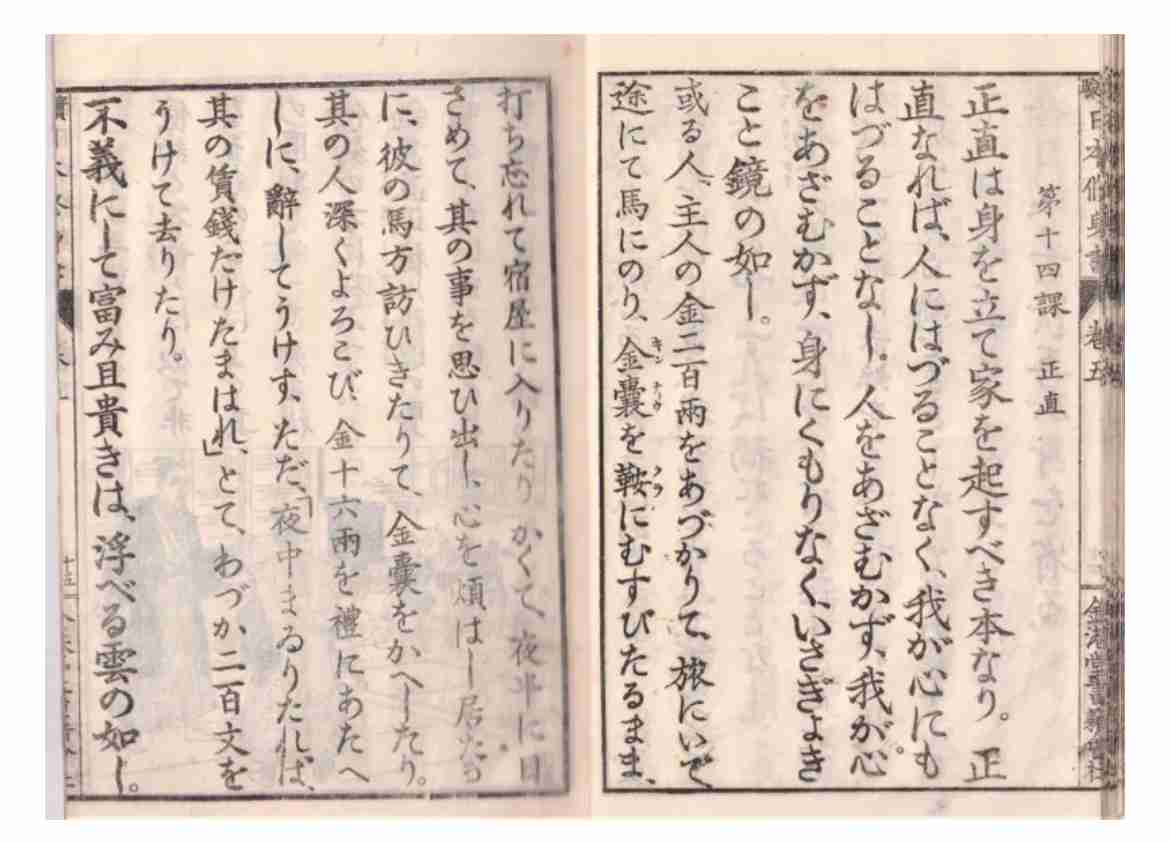 第十四課 正直
正直は身を立て家を起すべき本なり。正
直なれば、人にはづることなく、我が心にも
はづることなし。人をあざむかず、我が心
をあざむかず、身にくもりなく、いさぎよき
こと鏡の如し。
或る人、主人の金二百兩をあづかりて、旅にいで
途にて馬にのり、金嚢を鞍にむすびたるまま、
打ち忘れて宿屋に入りたり かくて、夜半に目
さめて、其の事を思ひ出し、心を煩はし居たる
に、彼の馬方訪ひきたりて、金嚢をかへしたり。
其の人深くよろこび、金十六兩を禮にあたへ
しに、辭してうけず、ただ、「夜中まゐりたれば、
其の賃錢だけたまはれ」、とて、わづか二百文を
うけて去りたり。
不義にして富み且貴きは、浮べる雲の如し。
卷五
十五